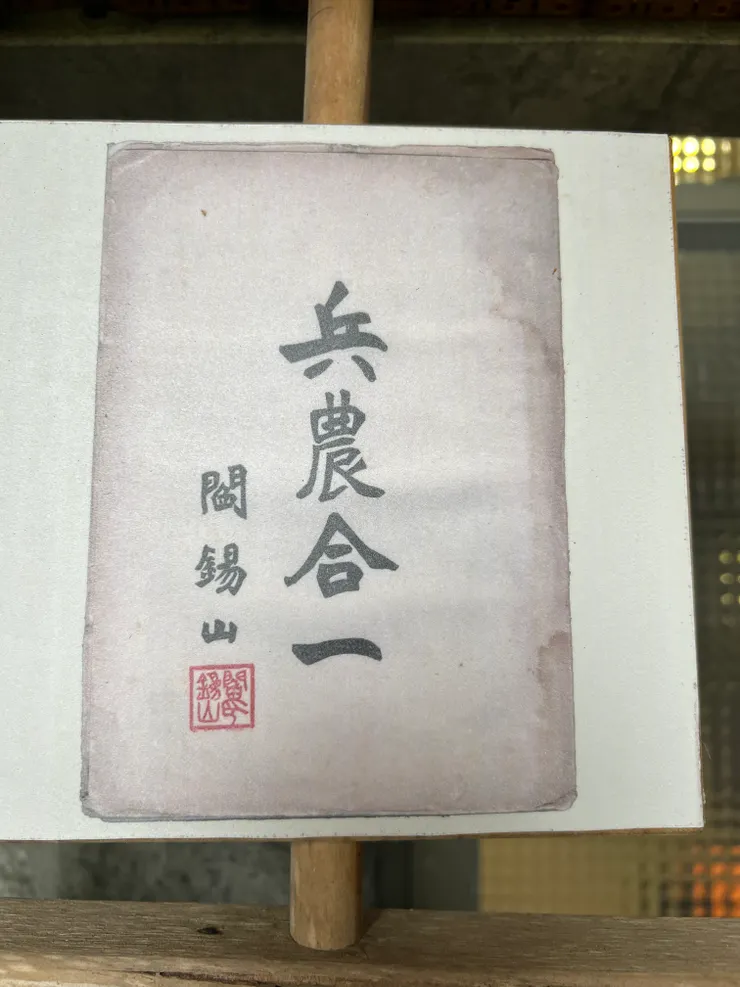 兵農合一
閻錫山
閻錫山印